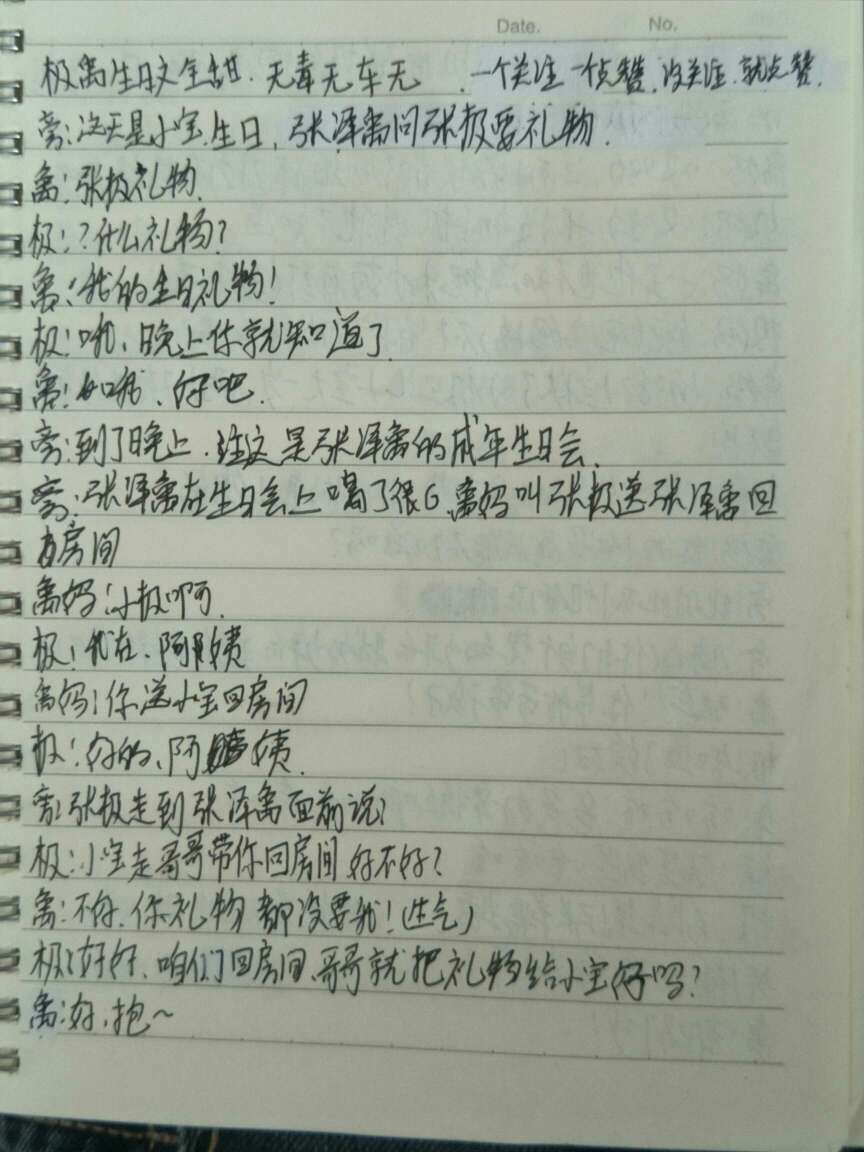 Date. No.
极禽生日文全甜．无毒无车无．一个关注一个点赞．没关注．就点赞．
旁：这天是小宝．生日，张泽禽问张极要礼物．
禽：张极礼物．
极：？什么礼物？
禽：我的生日礼物！
极：哦、晚上你就知道了．
禽：如哦．好吧．
旁：到了晚上．注这是张泽禽的成年生日会．
旁：张泽禽在生日会上喝了很6．禽妈叫张极送张泽禽回
房间
禽妈：小极啊．
极：我在．阿姨
禽妈：你送小宝回房间
极：好的、阿姨．
旁：张极走到张泽禽面前说：
极：小宝走哥哥带你回房间好不好？
禽：不好．你礼物都没要我！（生气）
极：好好．咱们回房间、哥哥就把礼物给小宝好吗？
禽：好，抱～